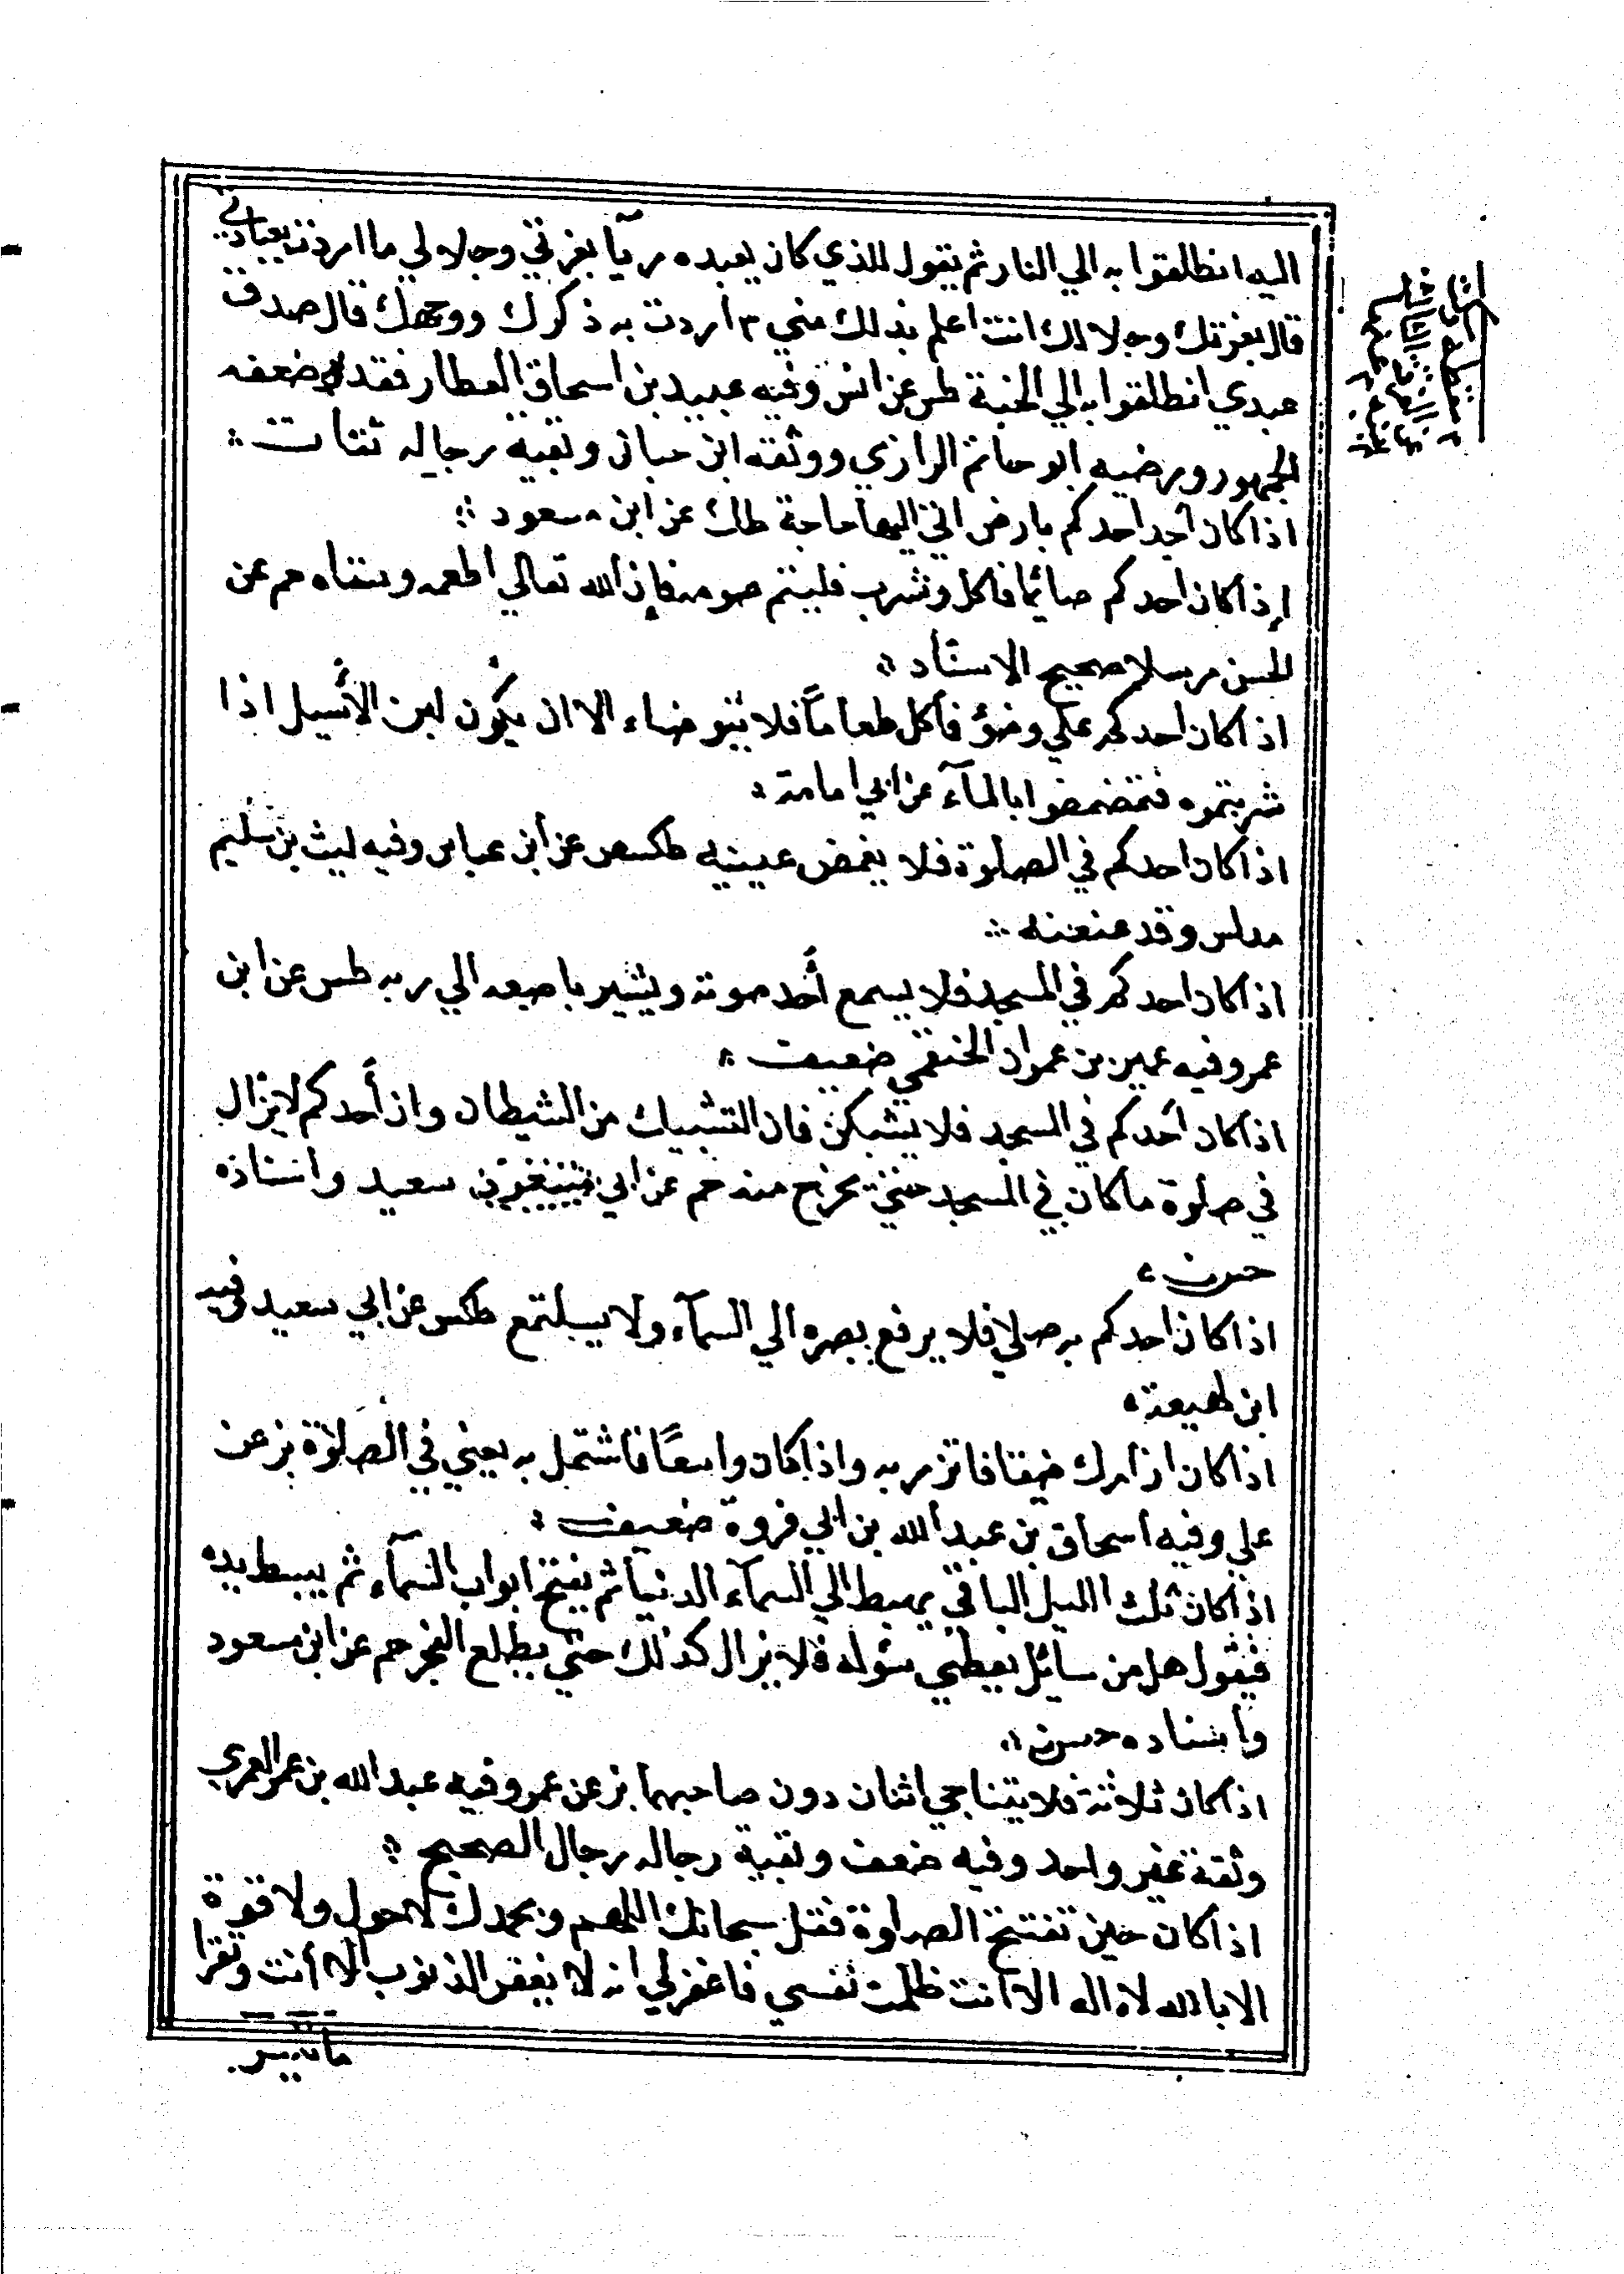 اليه انطلقوا به الي النار ثم يقول للذي كان يعبده ريآ بعزتي وجلالي ما اردت بعبادتي
قال بعزتك وجلالك انت اعلم بذلك مني اردت به ذكرك ووجهك قال صدق
عبدي انطلقوا به الي الجنة طس عن انس وفيه عبيد بن اسحاق العطار فقد ضعفه
الجمهور ورضيه ابو حاتم الرازي ووثقه ابن حبان وبقية رجاله ثقات
اذا كان أجد احدكم بارض اتي اليها حاجة طك عن ابن مسعود
إذا كان احدكم صائما فاكل وشرب فليتم صومه فإن الله تعالي اطعمه وسقاه حم عن
الحسن مرسلا صحيح الاسناد
اذا كان احدكم علي وضؤ فأكل طعاماً فلا يتوضاء الا ان يكون لبن الأبيل اذا
شربتموه فتمضمضوا بالمآء عن ابي امامة
اذا كان احدكم في الصلوة فلا يغمض عينيه طكسص عن ابن عباس وفيه ليث بن سليم
مدلس وقد عنعنه
اذا كان احدكم في المسجد فلا يسمع أحد صوته ويشير باصبعه الي ربه طس عن ابن
عمر وفيه عمير بن عمران الحنفي ضعيف
اذا كان أحدكم في المسجد فلا يشبكن فان التشبيك من الشيطان وان أحدكم لا يزال
في صلوة ما كان في المسجد حتي يخرج منه حم عن ابي سعيد واسناده
حسن
اذا كان احدكم يرصلي فلا يرفع بصره الي السمآء ولا يسلتمع طكس عن ابي سعيد وفيه
ابن لهيعة
اذا كان ازارك ضيقا فاتزر به واذا كان واسعًا فاشتمل به يعني في الصلوة بز عن
علي وفيه اسحاق بن عبد الله بن ابي فروة ضعيف
اذا كان ثلث الليل الباقي يهبط الي السمآء الدنيا ثم يفتح ابواب السمآء ثم يبسط يده
فيقول هل من سائل يعطي سؤله فلا يزال كذلك حتي يطلع الفجر حم عن ابن مسعود
وأسناده حسن
اذا كان ثلاثة فلا يتناجي اثنان دون صاحبهما بز عن عمر وفيه عبد الله بن عمر العمري
وثقة غير واحد وفيه ضعف وبقية رجاله رجال الصحيح
اذا كان حين تفتتح الصلوة فقل سبحانك اللهم وبحمدك لا حول ولا قوة
الا بالله لا اله الا أنت ظلمت نفسي فاغفر لي انه لا يغفر الذنوب الا أنت وتقرا
ما تيسر